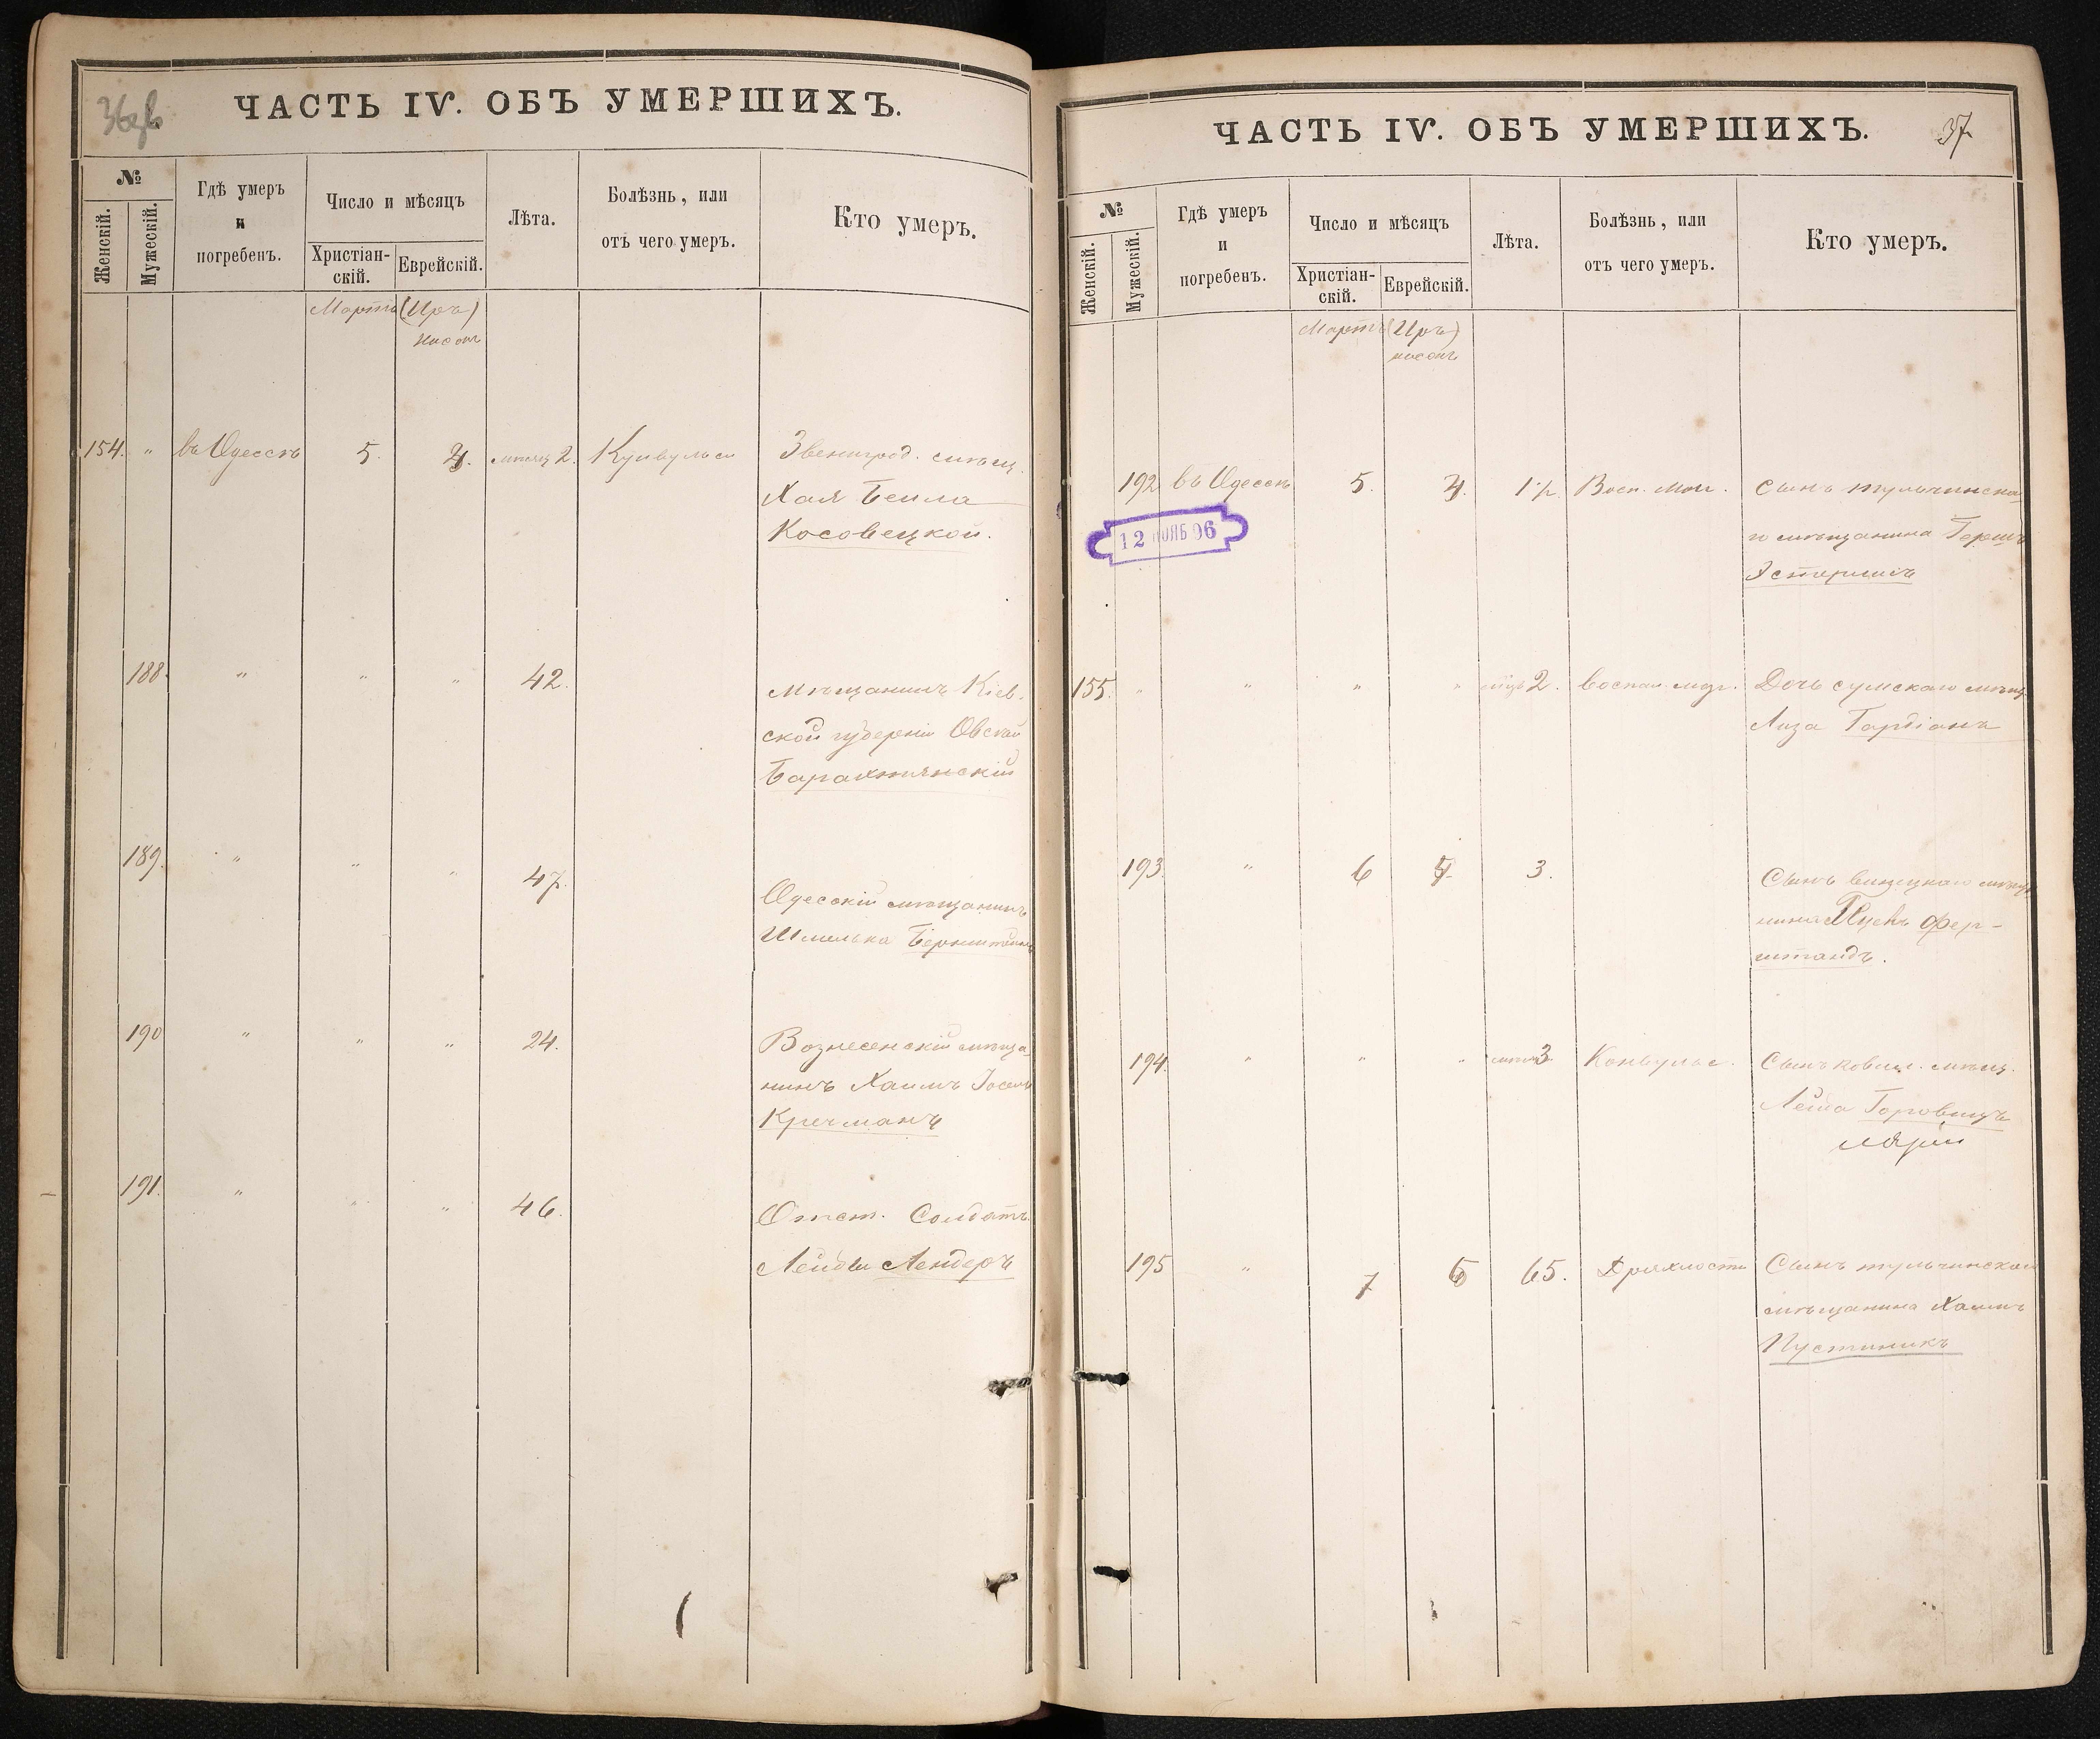 36об
ЧАСТЬ IV. ОБЪ УМЕРШИХЪ.
№
Женскій.
Мужескій.
Гдѣ умеръ
и
погребенъ.
Число и мѣсяцъ
Христіан-
скій.
Еврейскій.
Лѣта.
Болѣзнь, или
отъ чего умеръ.
Кто умеръ.
Мартъ (Иръ)
Нисонъ
154. " въ Одессѣ 5. 4. мѣсяц 2. Звенигород. мѣщ.
Хая Бейла
Косовецкой.
188. " " " 42. Мѣщанинъ Кіев-
ской губерніи Овсѣй
189. " " " 47. Одесскій мѣщанинъ
Шмилька Бернштейнъ
190 " " " 24. Вознесенскій мѣща-
нинъ Хаимъ Іосель
Кречманъ
191. " " " 46. Отст. Солдатъ
Лейба Лендеръ
ЧАСТЬ IV. ОБЪ УМЕРШИХЪ.
37
№
Женскій.
Мужескій.
Гдѣ умеръ
и
погребенъ.
Число и мѣсяцъ
Христіан-
скій.
Еврейскій.
Лѣта.
Болѣзнь, или
отъ чего умеръ.
Кто умеръ.
Мартъ (Иръ)
нисонъ
192 въ Одессѣ 5. 4. Восп. Сынъ тульчинска-
го мѣщанина Гершъ
Эстерлисъ
12 НОЯБ 96
155. " " " " 2. воспал. мозг. Дочь сумскаго мѣщ.
Лиза
193. " 6 5. 3. Сынъ мѣща-
нина Фер-
штандъ.
194. " " " 3 Конвульс. Сынъ мѣщ.
Лейба Горовицъ
195 " 7 6 65. Дряхлость Сынъ тульчинскаго
мѣщанина Хаимъ
Пустыникъ